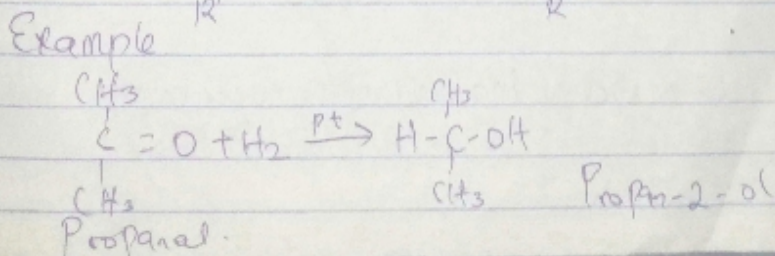 Example
CH3
CH3
C = O + H2 pt→ H-C-OH
CH3
CH3
Propan-2-ol
Propanal.